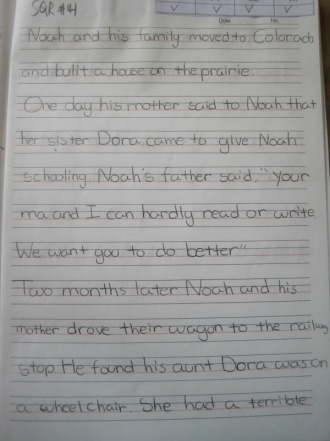 SQR #41
Date No.
Noah and his family moved to Colorado
and bulit a house on the prairie.
One day his mother said to Noah that
her sister Dora came to give Noah
schooling Noah's father said, "your
ma and I can hardly read or write
We want you to do better"
Two months later Noah and his
mother drove their wagon to the railway
stop. He found his aunt Dora was on
a wheelchair. She had a terrible